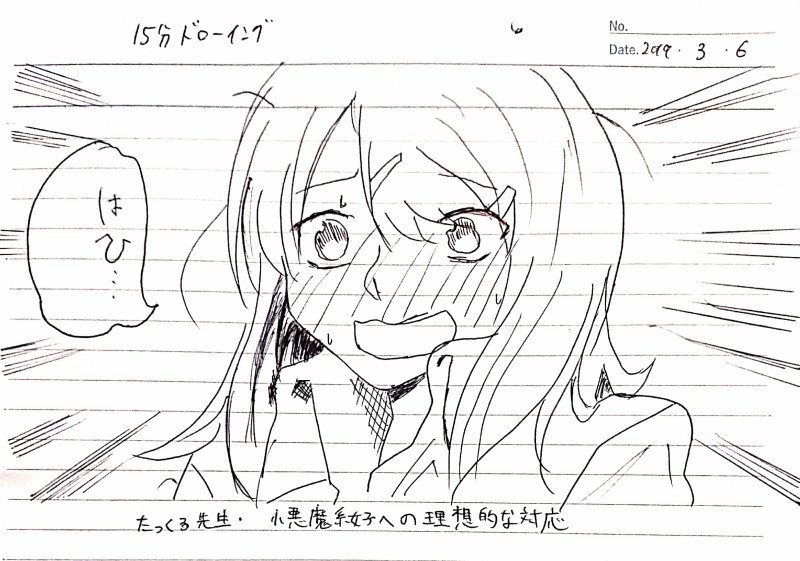 15分ドローイング
No.
Date. 2019・3・6
はひ…
たっくる先生・ 小悪魔系女子への理想的な対応